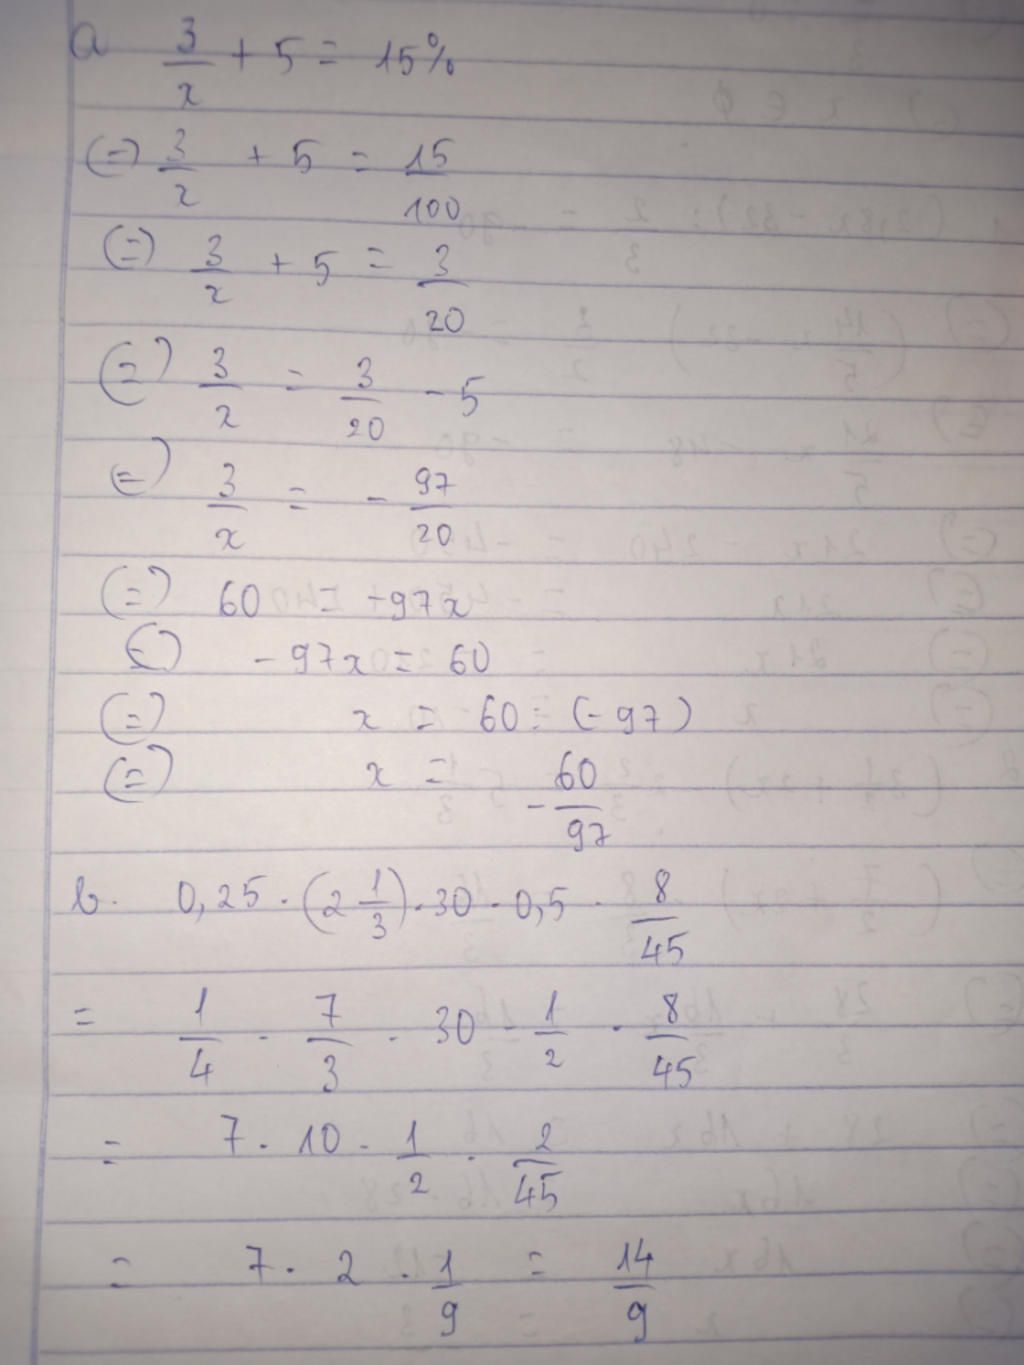 a 3/x + 5 = 15%
(=) 3/x + 5 = 15/100
(=) 3/x + 5 = 3/20
(=) 3/x = 3/20 - 5
(=) 3/x = - 97/20
(=) 60 = -97x
(=) -97x = 60
(=) x = 60 : (-97)
(=) x = - 60/97
b. 0,25 . (2 1/3) . 30 . 0,5 . 8/45
= 1/4 . 7/3 . 30 . 1/2 . 8/45
= 7 . 10 . 1/2 . 2/45
= 7 . 2 . 1/9 = 14/9